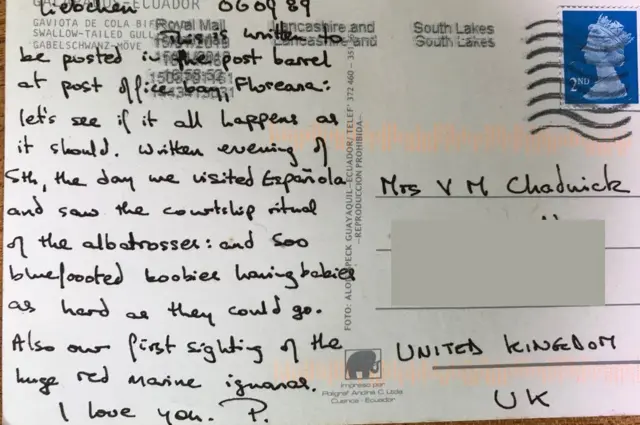 Liebchen 060989
GALAPAGOS-ECUADOR
GAVIOTA DE COLA BIF
SWALLOW-TAILED GULL
GABELSCHWANZ-MÖVE
Royal Mail
Lancashire and South Lakes
Lancashire and South Lakes
This is written to
be posted in the post barrel
at post office bay, Floreana:
let's see if it all happens as
it should. Written evening of
5th, the day we visited Española
and saw the courtship ritual
of the albatrosses: and 500
bluefooted boobies having babies
as hard as they could go.
Also our first sighting of the
huge red marine iguanas.
I love you. P.
GUAYAQUIL-ECUADOR/TELEF: 372 460 - 351
-REPRODUCCION PROHIBIDA-
Impreso por
Poligraf Andina C. Ltda
Cuenca - Ecuador
2ND
Mrs V M Chadwick
UNITED KINGDOM
UK